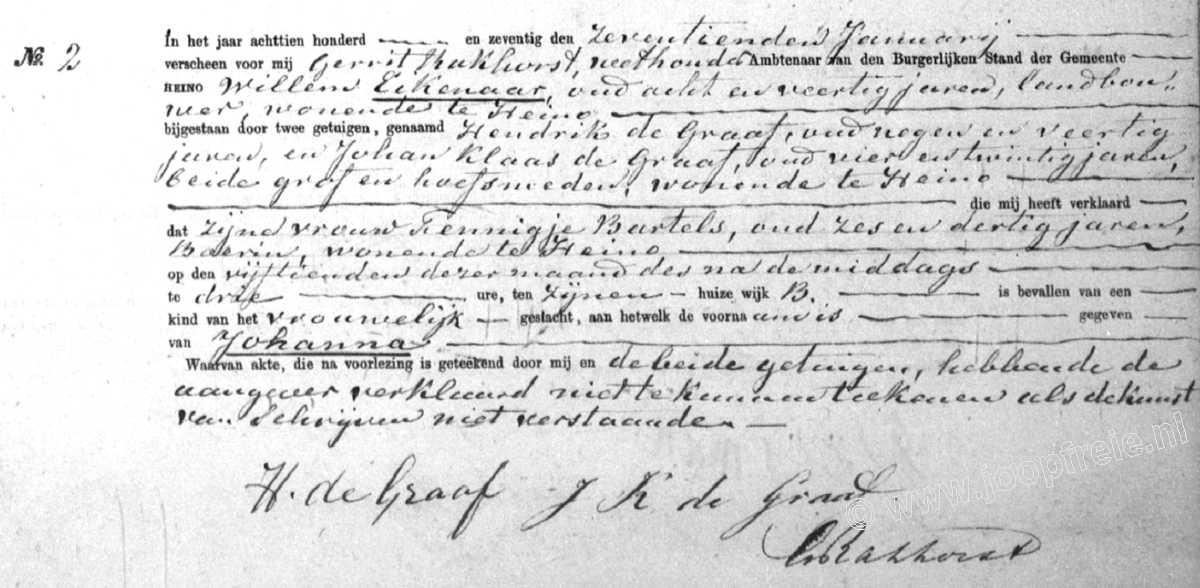 No. 2
In het jaar achttien honderd en zeventig den zeventienden Januarij
verscheen voor mij Gerrit Rakhorst, wethouder Ambtenaar van den Burgerlijken Stand der Gemeente
HEINO Willem Eikenaar, oud acht en veertig jaren, landbou„
wer, wonende te Heino
bijgestaan door twee getuigen, genaamd Hendrik de Graaf, oud negen en veertig
jaren, en Johan Klaas de Graaf, oud vier en twintig jaren,
beide grof en hoefsmeden, wonende te Heino
die mij heeft verklaard
dat zijne vrouw Fennigje Bartels, oud zes en dertig jaren,
Boerin, wonende te Heino
op den vijftienden dezer maand des na de middags
te drie ure, ten zijnen huize wijk B. is bevallen van een
kind van het vrouwelijk geslacht, aan hetwelk de voornaam is gegeven
van Johanna
Waarvan akte, die na voorlezing is geteekend door mij en de beide getuigen, hebbende de
aangever verklaard niet te kunnen teekenen als de kunst
van schrijven niet verstaande.
H. de Graaf J K de Graaf
GRakhorst
© www.joopfreie.nl